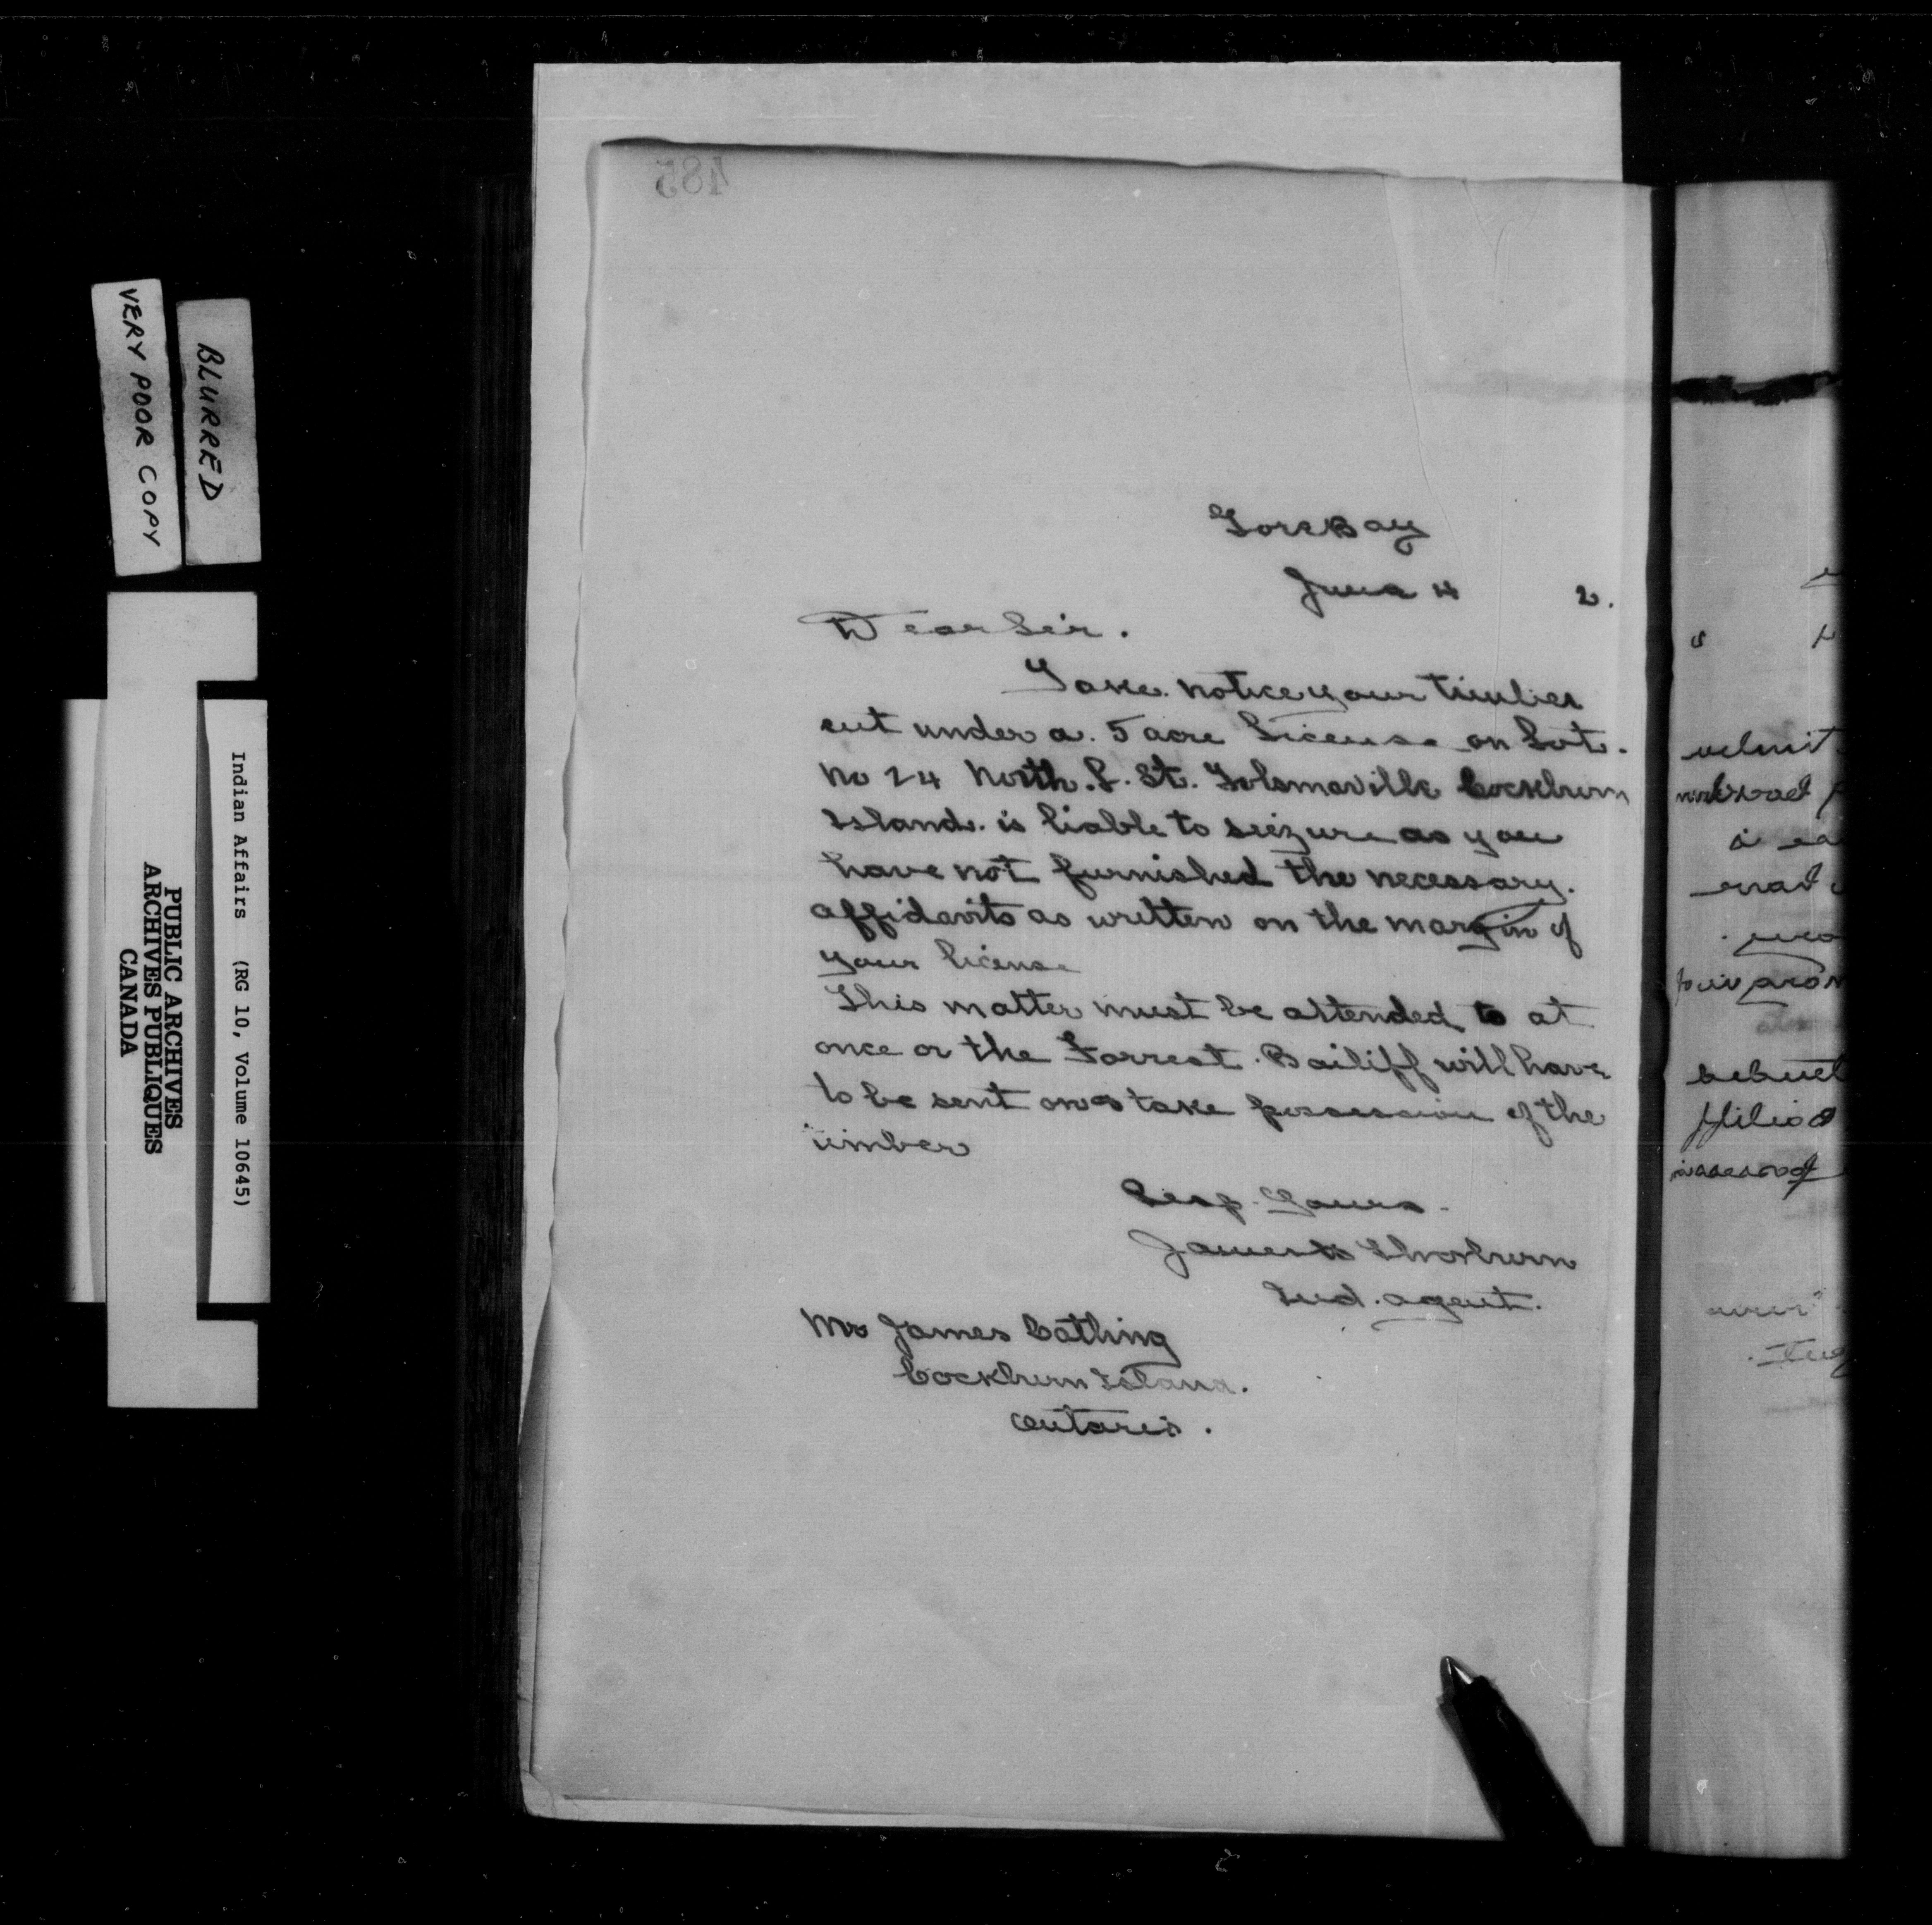 485
Gore Bay
June 4 2.
Dear Sir.
Take notice your timber
cut under a. 5 acre License on Lot.
No 24 North. L. St. Tolsmaville Cockburn
Island. is liable to seizure as you
have not furnished the necessary.
affidavits as written on the margin of
your license
This matter must be attended to at
once or the Forrest. Bailiff will have
to be sent on to take possession of the
timber
Resp. Yours.
James H Thorburn
Ind. agent.
Mr James Catling
Cockburn Island.
Ontario.
VERY POOR COPY
BLURRED
Indian Affairs (RG 10, Volume 10645)
PUBLIC ARCHIVES
ARCHIVES PUBLIQUES
CANADA